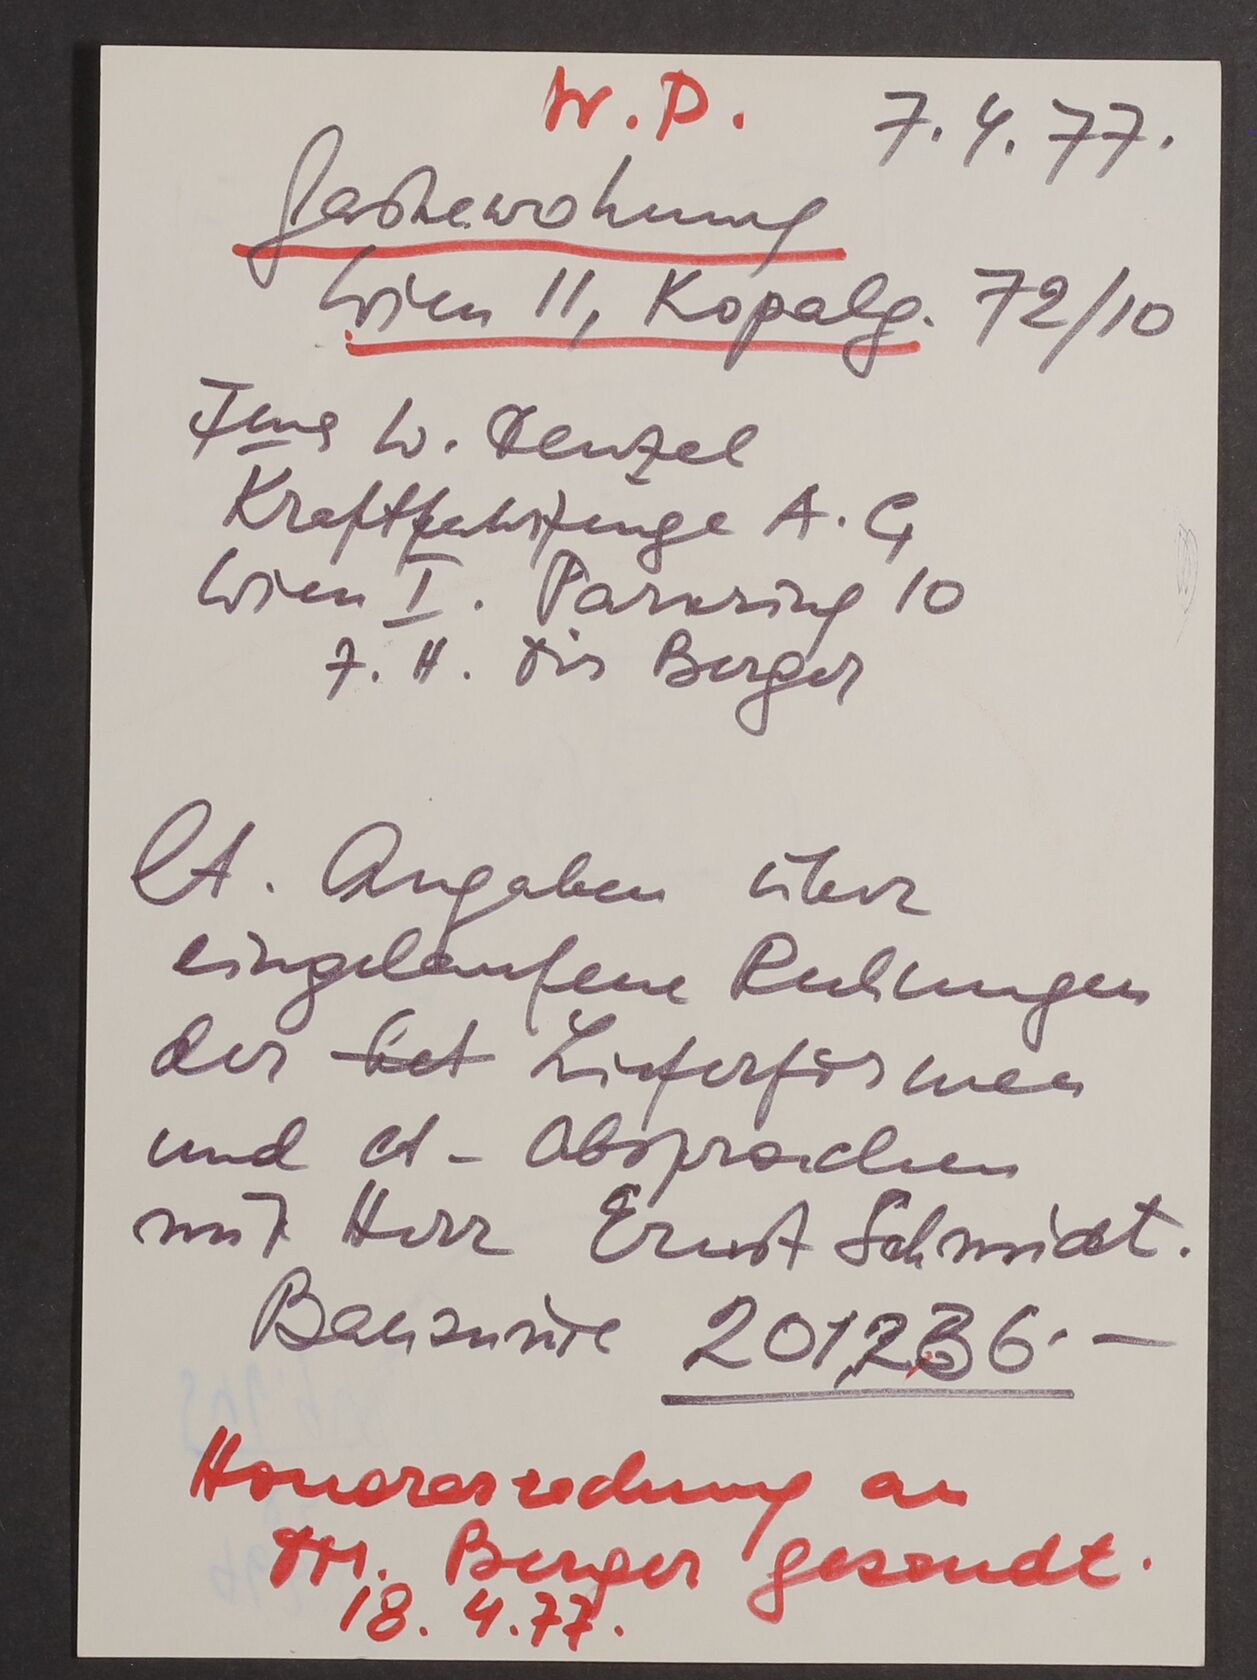 W. P. 7.4.77.
Gästewohnung
Wien 11, Kopalg. 72/10
Fma W. Denzel
Kraftfahrzeuge A.G
Wien I. Parkring 10
z. H. Dir Berger
Lt. Angaben über
eingelaufene Rechnungen
der Lieferfirmen
und lt- Absprachen
mit Herr Ernst Schmidt.
Bausumme 201236.-
Honorarrechnung an
Dir. Berger gesandt.
18.4.77.